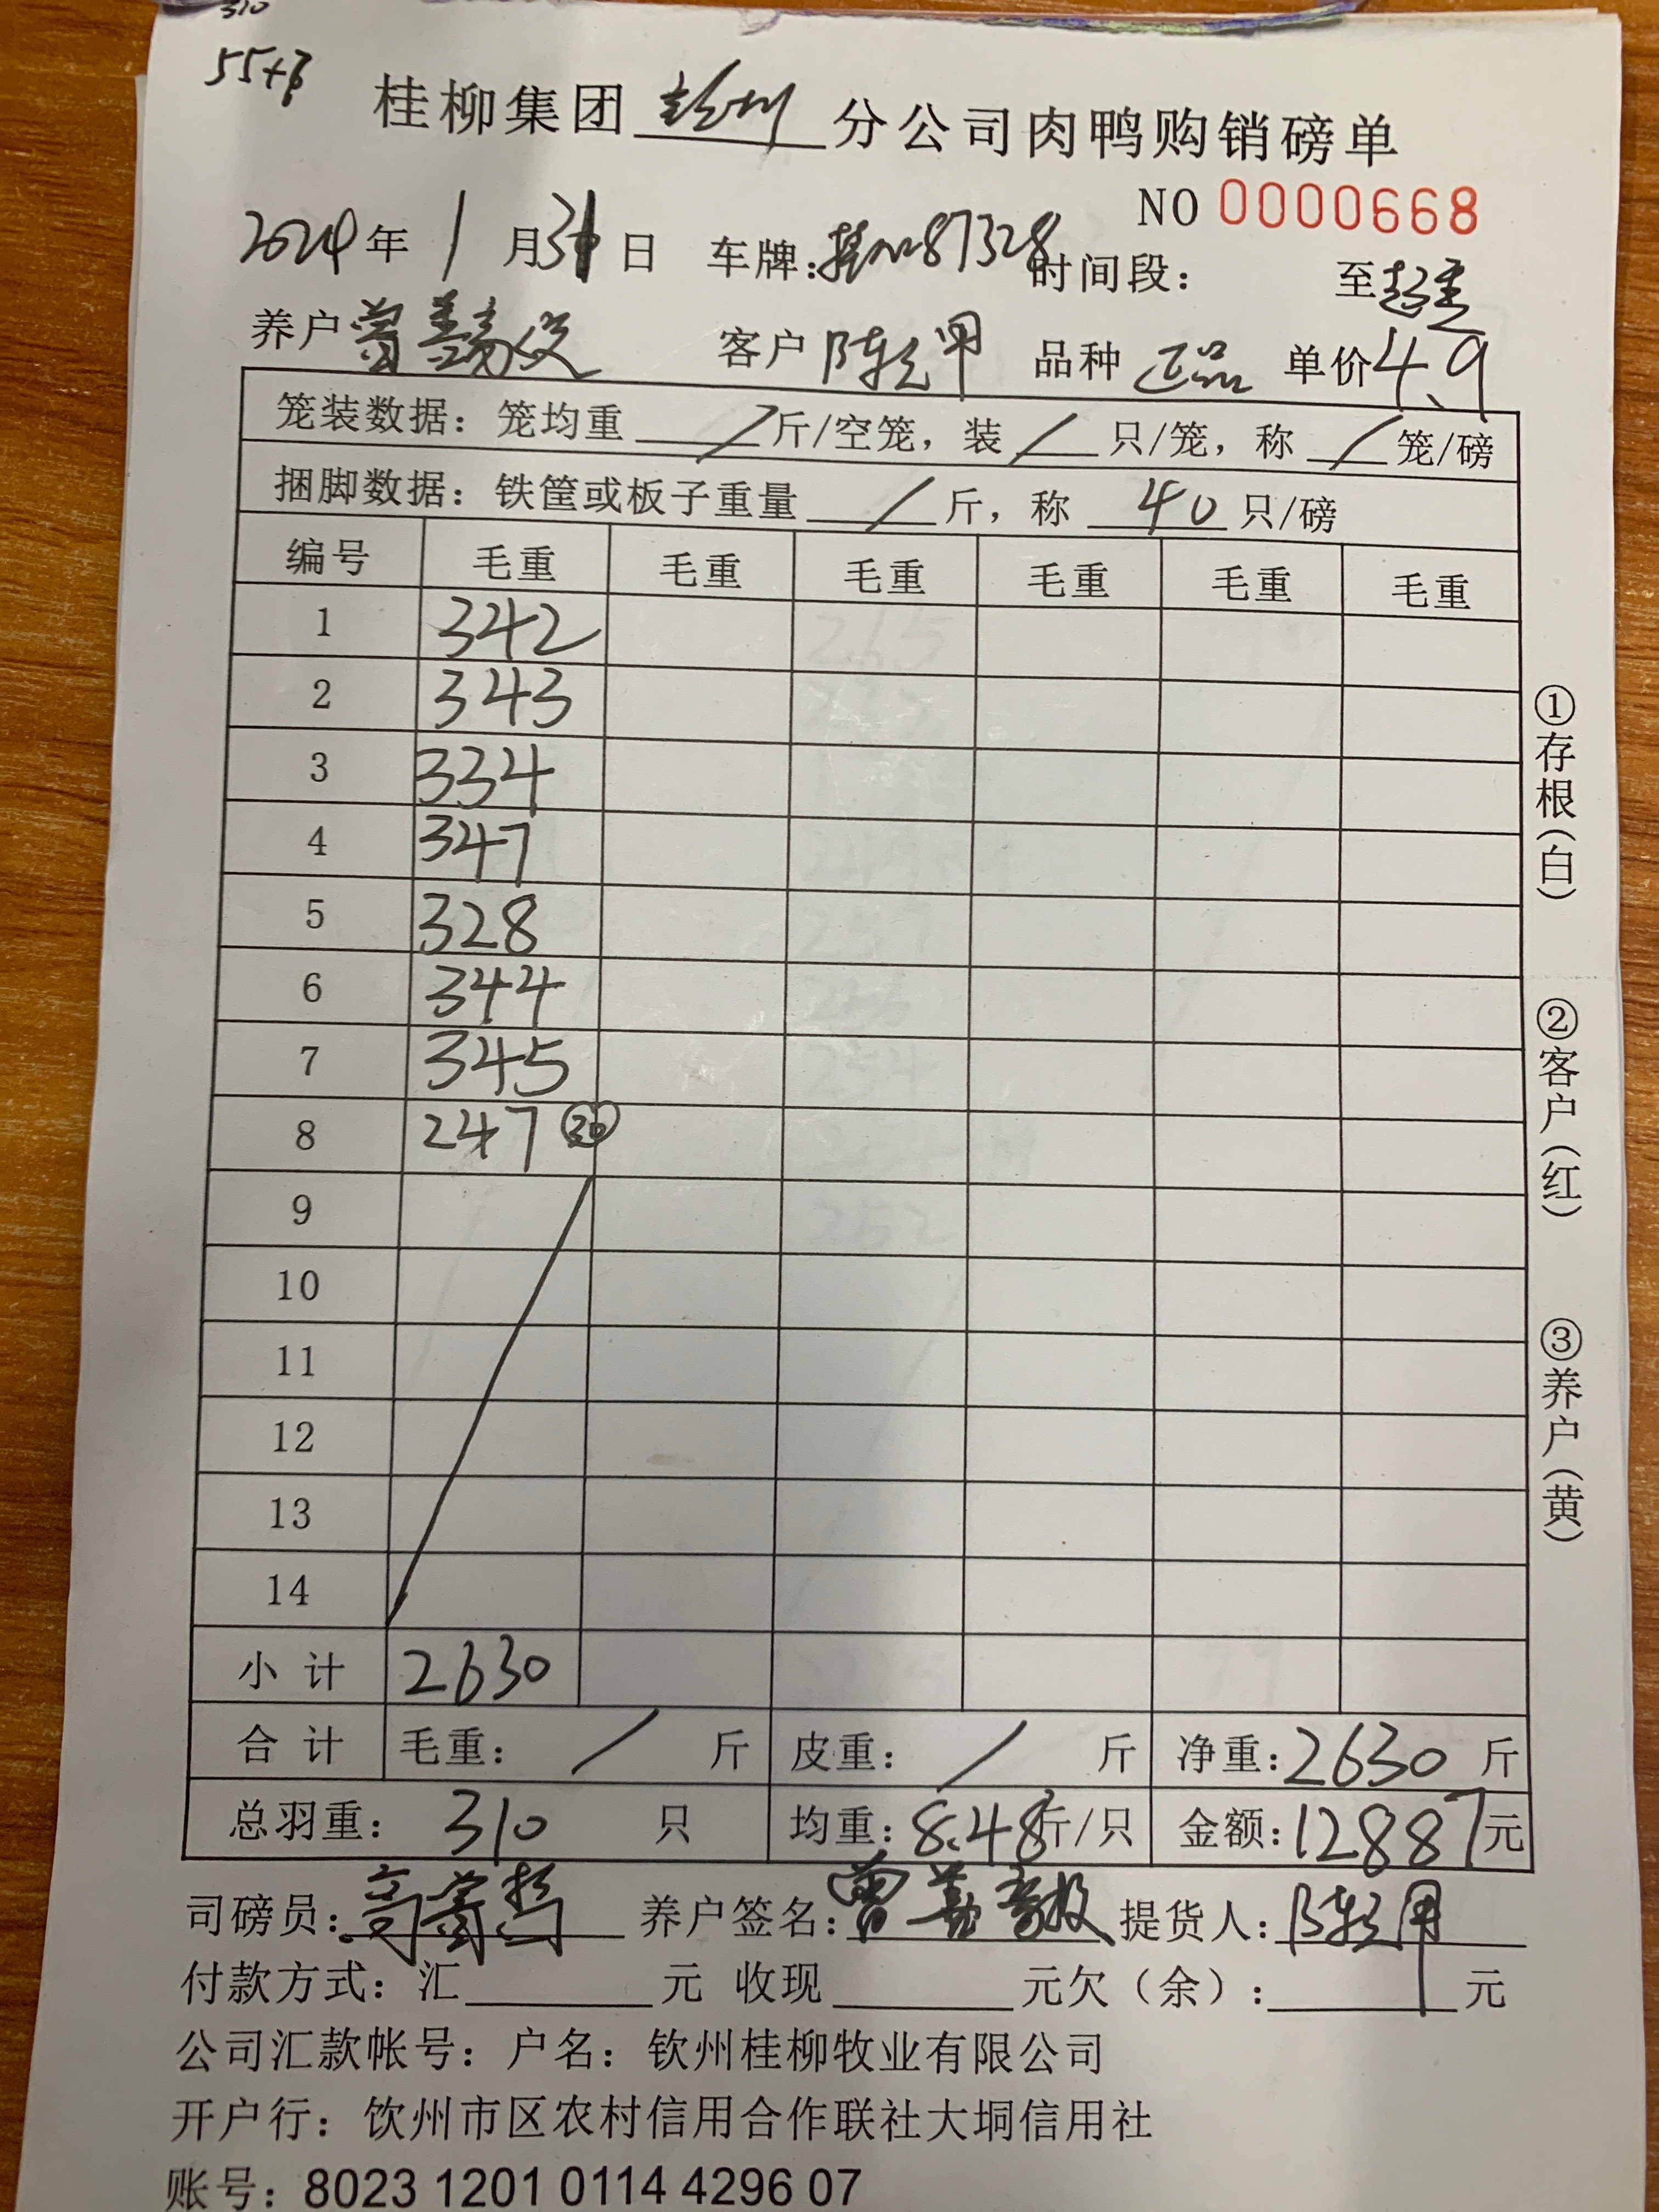 310
55+
桂柳集团 分公司肉鸭购销磅单
NO 0000668
2024年 1月31日 车牌: 87328 时间段: 至
养户 曾 客户 陈 品种 正品 单价 4.9
笼装数据: 笼均重 / 斤/空笼, 装 / 只/笼, 称 / 笼/磅
捆脚数据: 铁筐或板子重量 / 斤, 称 40 只/磅
编号 毛重 毛重 毛重 毛重 毛重 毛重
1 342
2 343
3 334
4 347
5 328
6 344
7 345
8 247 30
9
10
11
12
13
14
小计 2630
合计 毛重: / 斤 皮重: / 斤 净重: 2630 斤
总羽重: 310 只 均重: 8.48斤/只 金额: 12887元
司磅员: 养户签名: 曾 提货人: 陈
付款方式: 汇 元 收现 元欠(余): 元
公司汇款帐号: 户名: 钦州桂柳牧业有限公司
开户行: 钦州市区农村信用合作联社大垌信用社
账号: 8023 1201 0114 4296 07
①存根(白)
②客户(红)
③养户(黄)